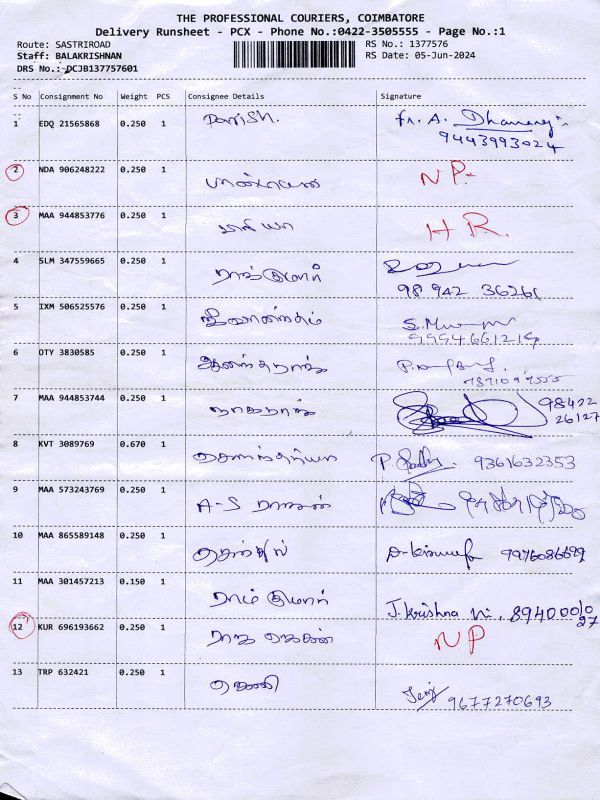 THE PROFESSIONAL COURIERS, COIMBATORE
Delivery Runsheet - PCX - Phone No.:0422-3505555 - Page No.:1
Route: SASTRIROAD
Staff: BALAKRISHNAN
DRS No.: DCJB137757601
RS No.: 1377576
RS Date: 05-Jun-2024
S No Consignment No Weight PCS Consignee Details Signature
1 EDQ 21565868 0.250 1 Parrish. fr. A. Dhananj
9443993024
2 NDA 906248222 0.250 1 NP.
3 MAA 944853776 0.250 1 HR.
4 SLM 347559665 0.250 1 ராஜ்குமார்
98942 36261
5 IXM 506525576 0.250 1 ஜீவானந்தம்
9994661214
6 OTY 3830585 0.250 1 ஆனந்தராஜ்
7 MAA 944853744 0.250 1 நாகராஜ் 98422
26127
8 KVT 3089769 0.670 1 சௌந்தர்யா 9361632353
9 MAA 573243769 0.250 1 A-S ராஜன்
10 MAA 865589148 0.250 1 செந்தில் 9976086699
11 MAA 301457213 0.150 1 ராம் குமார் J. Krishna 89400010
27
12 KUR 696193662 0.250 1 NP
13 TRP 632421 0.250 1 ஜெனி Jenj 9677270693